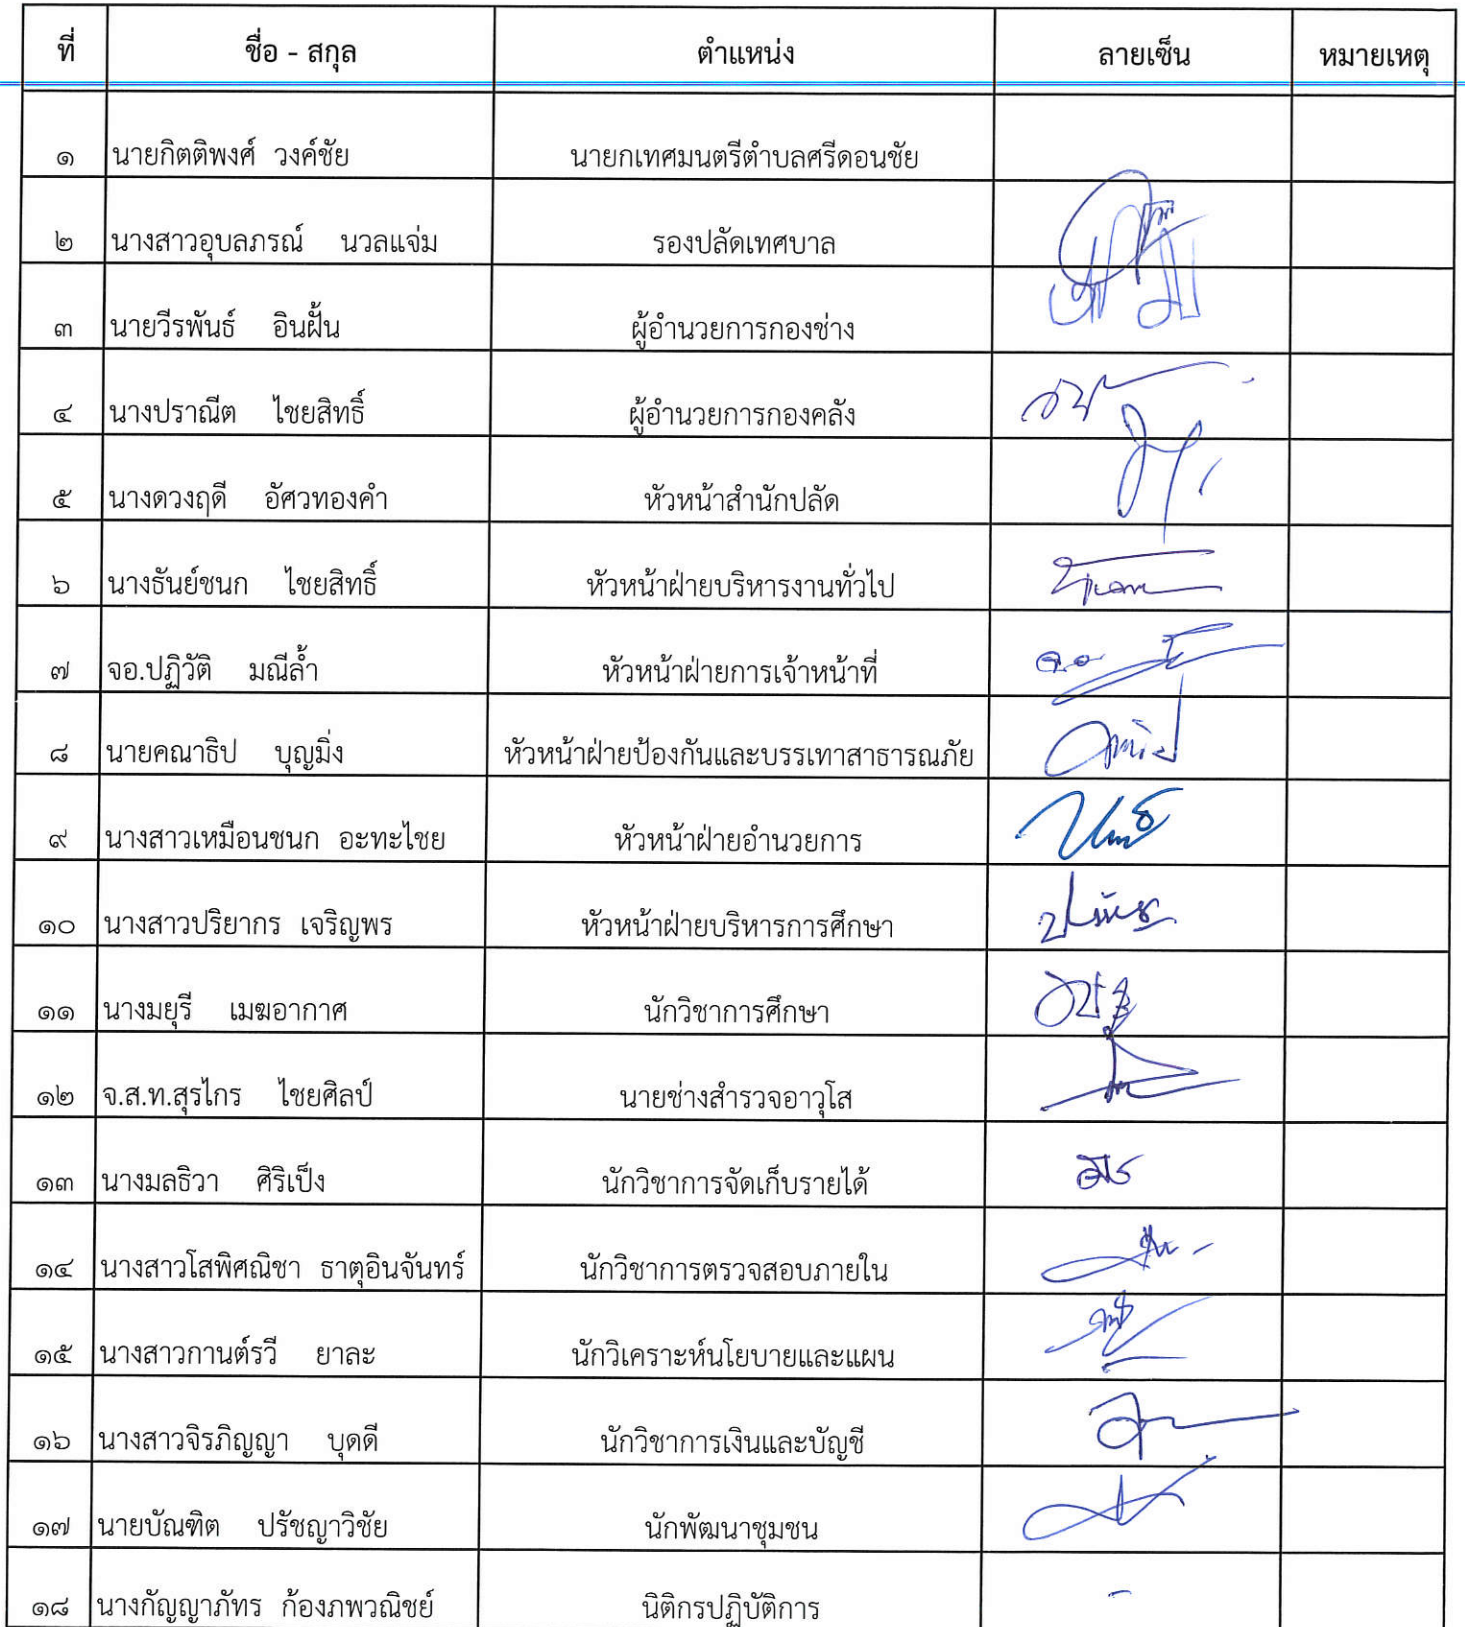 ที่ ชื่อ - สกุล ตำแหน่ง ลายเซ็น หมายเหตุ
๑ นายกิตติพงศ์ วงค์ชัย นายกเทศมนตรีตำบลศรีดอนชัย
๒ นางสาวอุบลภรณ์ นวลแจ่ม รองปลัดเทศบาล
๓ นายวีรพันธ์ อินฝั้น ผู้อำนวยการกองช่าง
๔ นางปราณีต ไชยสิทธิ์ ผู้อำนวยการกองคลัง
๕ นางดวงฤดี อัศวทองคำ หัวหน้าสำนักปลัด
๖ นางธันย์ชนก ไชยสิทธิ์ หัวหน้าฝ่ายบริหารงานทั่วไป
๗ จอ.ปฏิวัติ มณีล้ำ หัวหน้าฝ่ายการเจ้าหน้าที่
๘ นายคณาธิป บุญมิ่ง หัวหน้าฝ่ายป้องกันและบรรเทาสาธารณภัย
๙ นางสาวเหมือนชนก อะทะไชย หัวหน้าฝ่ายอำนวยการ
๑๐ นางสาวปริยากร เจริญพร หัวหน้าฝ่ายบริหารการศึกษา
๑๑ นางมยุรี เมฆอากาศ นักวิชาการศึกษา
๑๒ จ.ส.ท.สุรไกร ไชยศิลป์ นายช่างสำรวจอาวุโส
๑๓ นางมลธิวา ศิริเป็ง นักวิชาการจัดเก็บรายได้
๑๔ นางสาวโสพิศณิชา ธาตุอินจันทร์ นักวิชาการตรวจสอบภายใน
๑๕ นางสาวกานต์รวี ยาละ นักวิเคราะห์นโยบายและแผน
๑๖ นางสาวจิรภิญญา บุดดี นักวิชาการเงินและบัญชี
๑๗ นายบัณฑิต ปรัชญาวิชัย นักพัฒนาชุมชน
๑๘ นางกัญญาภัทร ก้องภพวณิชย์ นิติกรปฏิบัติการ